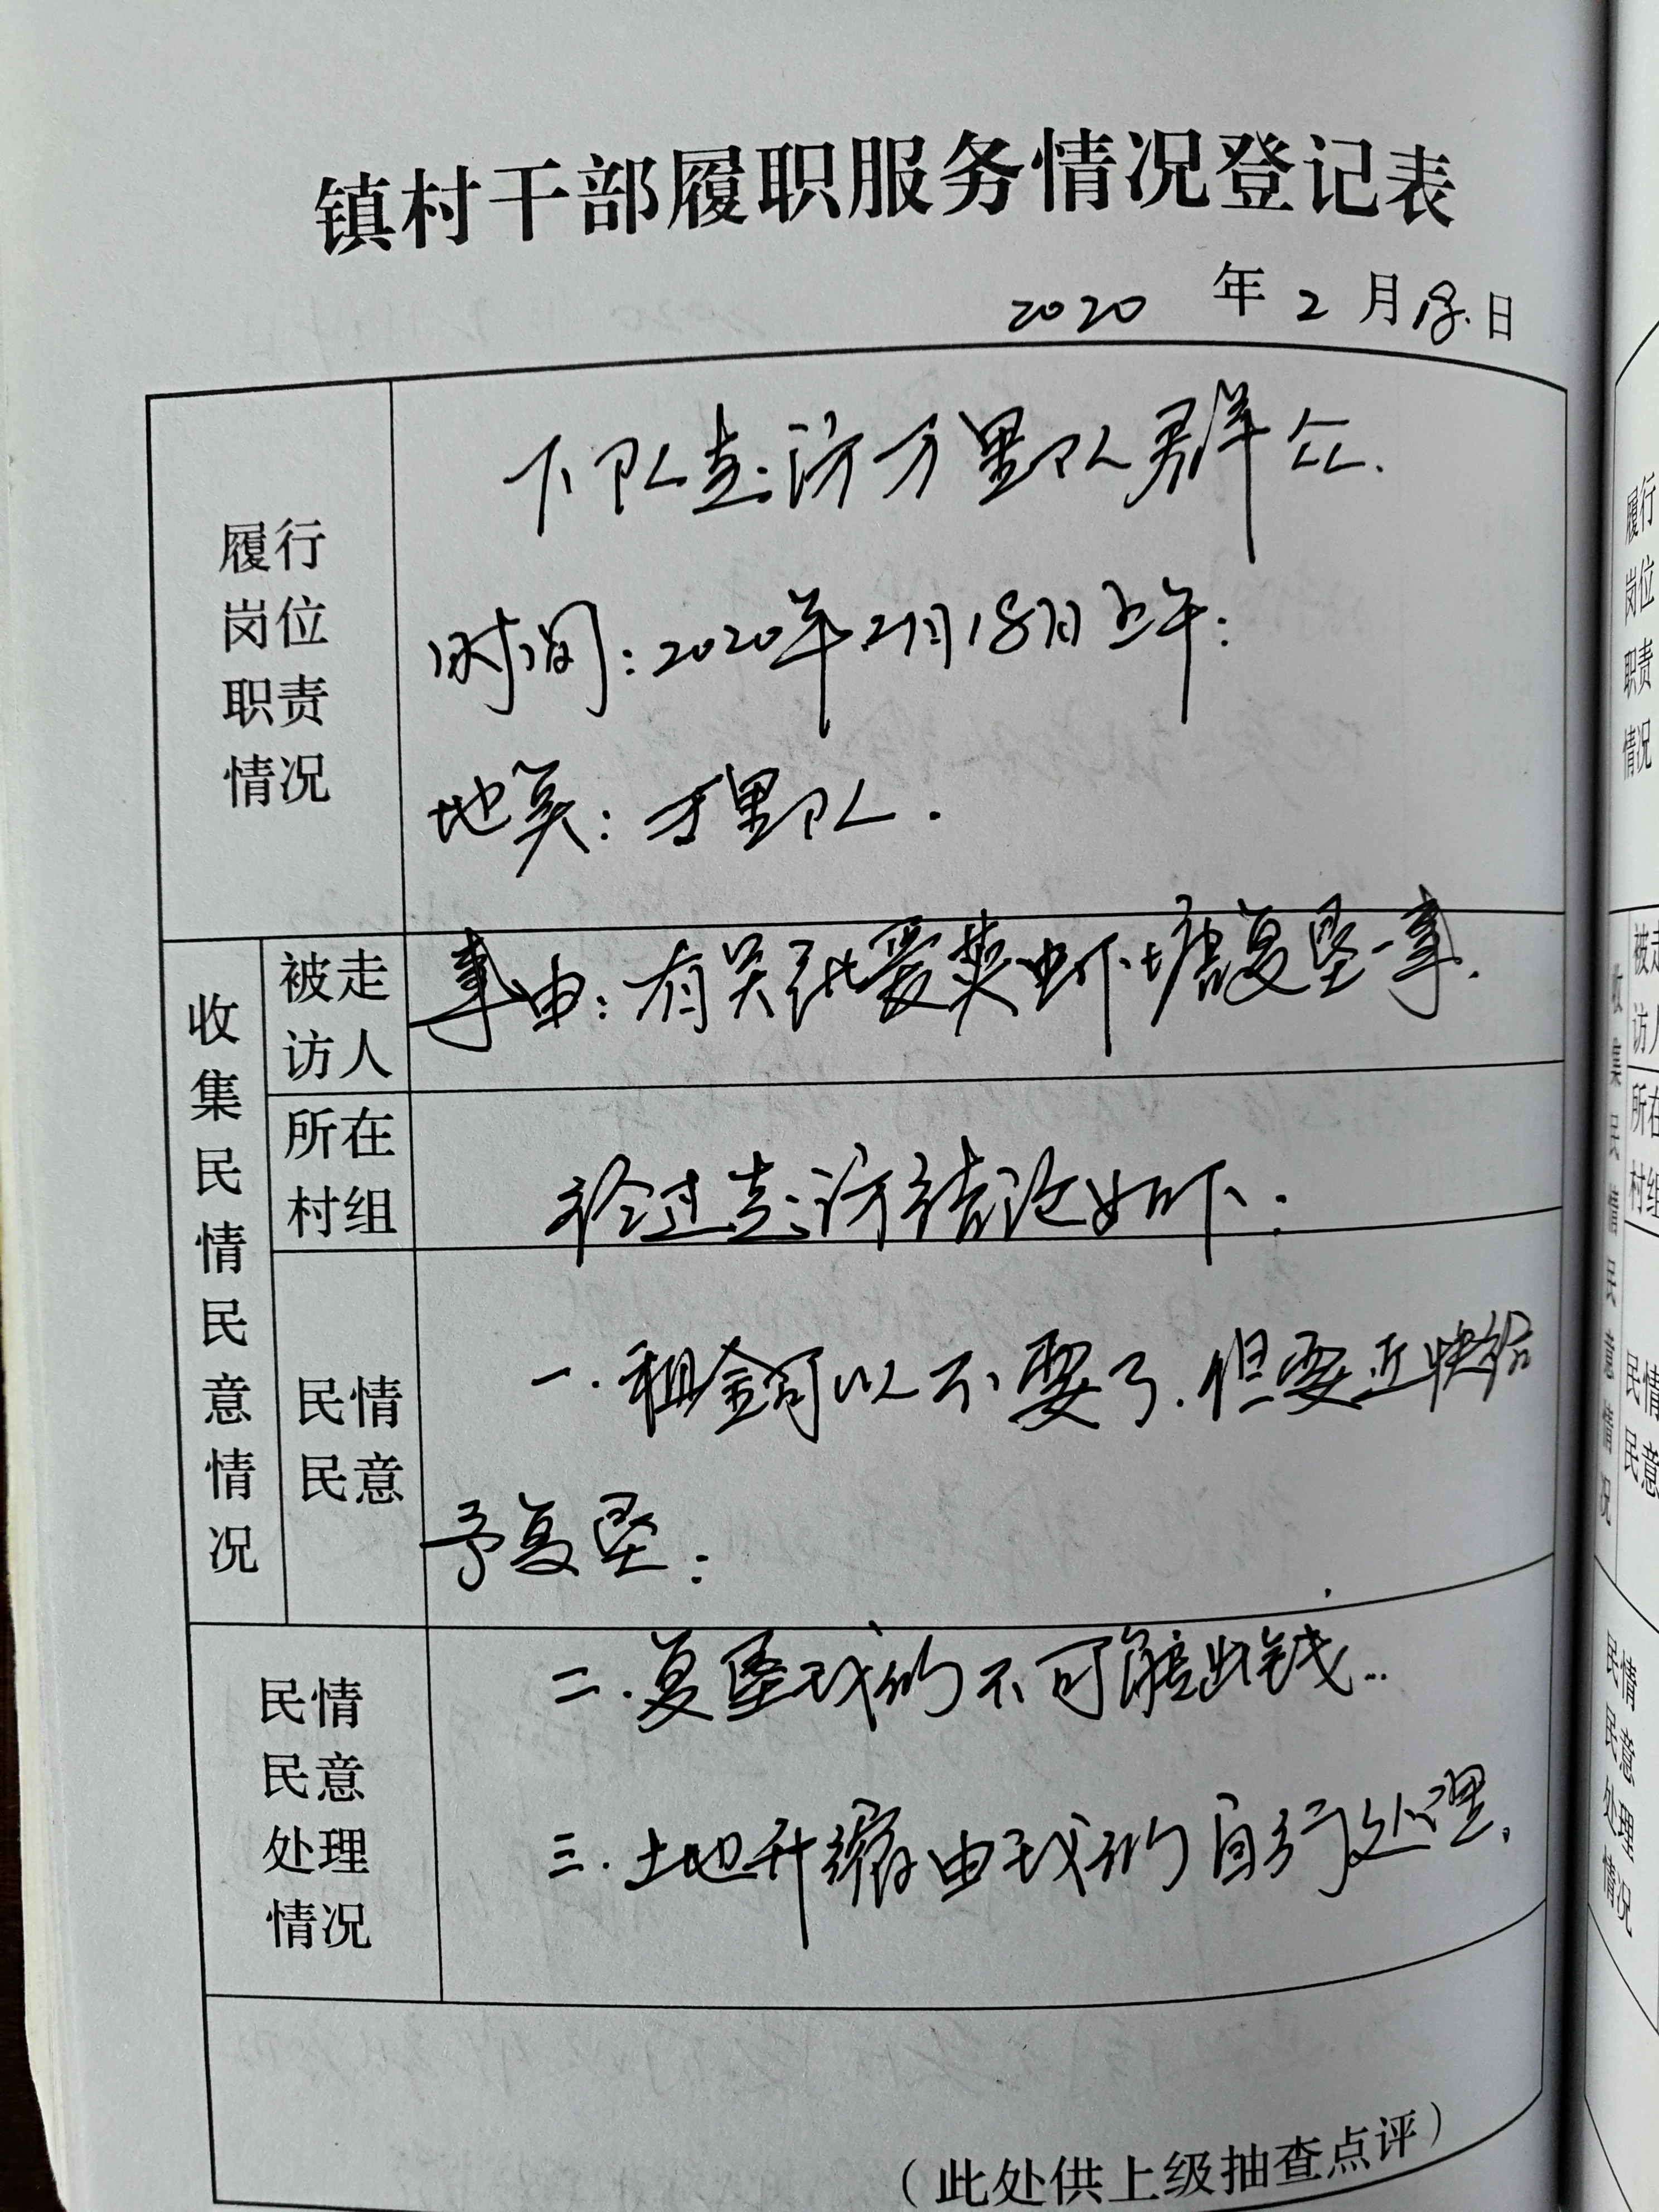 镇村干部履职服务情况登记表
2020 年 2 月 18 日
履行
岗位
职责
情况
下队走访万里队群众.
时间:2020年2月18日上午:
地点:万里队.
收集民情民意情况
被走
访人
事由:有关张爱英虾塘复垦一事.
所在
村组
经过走访结论如下:
民情
民意
一.租金可以不要了.但要近快给
予复垦;
民情
民意
处理
情况
二.复垦我们不可能出钱..
三.土地升溢由我们自行处理.
(此处供上级抽查点评)
履行
岗位
职责
情况
被走
访人
所在
村组
收集民情民意情况
民情
民意
民情
民意
处理
情况